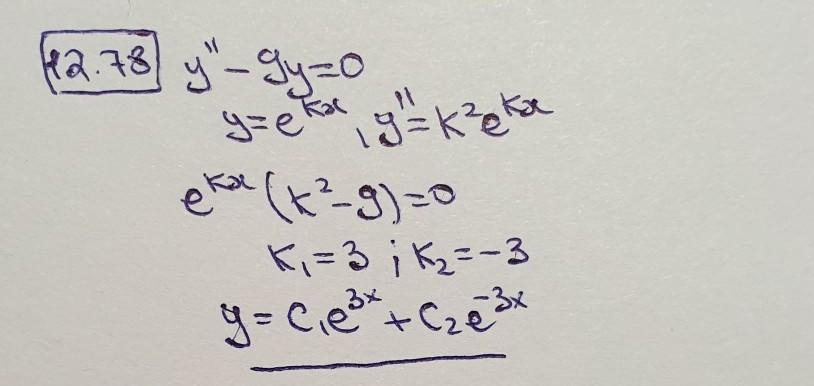 12.78 y'' - 9y = 0
y = e^{kx}, y'' = k^2 e^{kx}
e^{kx} (k^2 - 9) = 0
k_1 = 3 ; k_2 = -3
y = C_1 e^{3x} + C_2 e^{-3x}